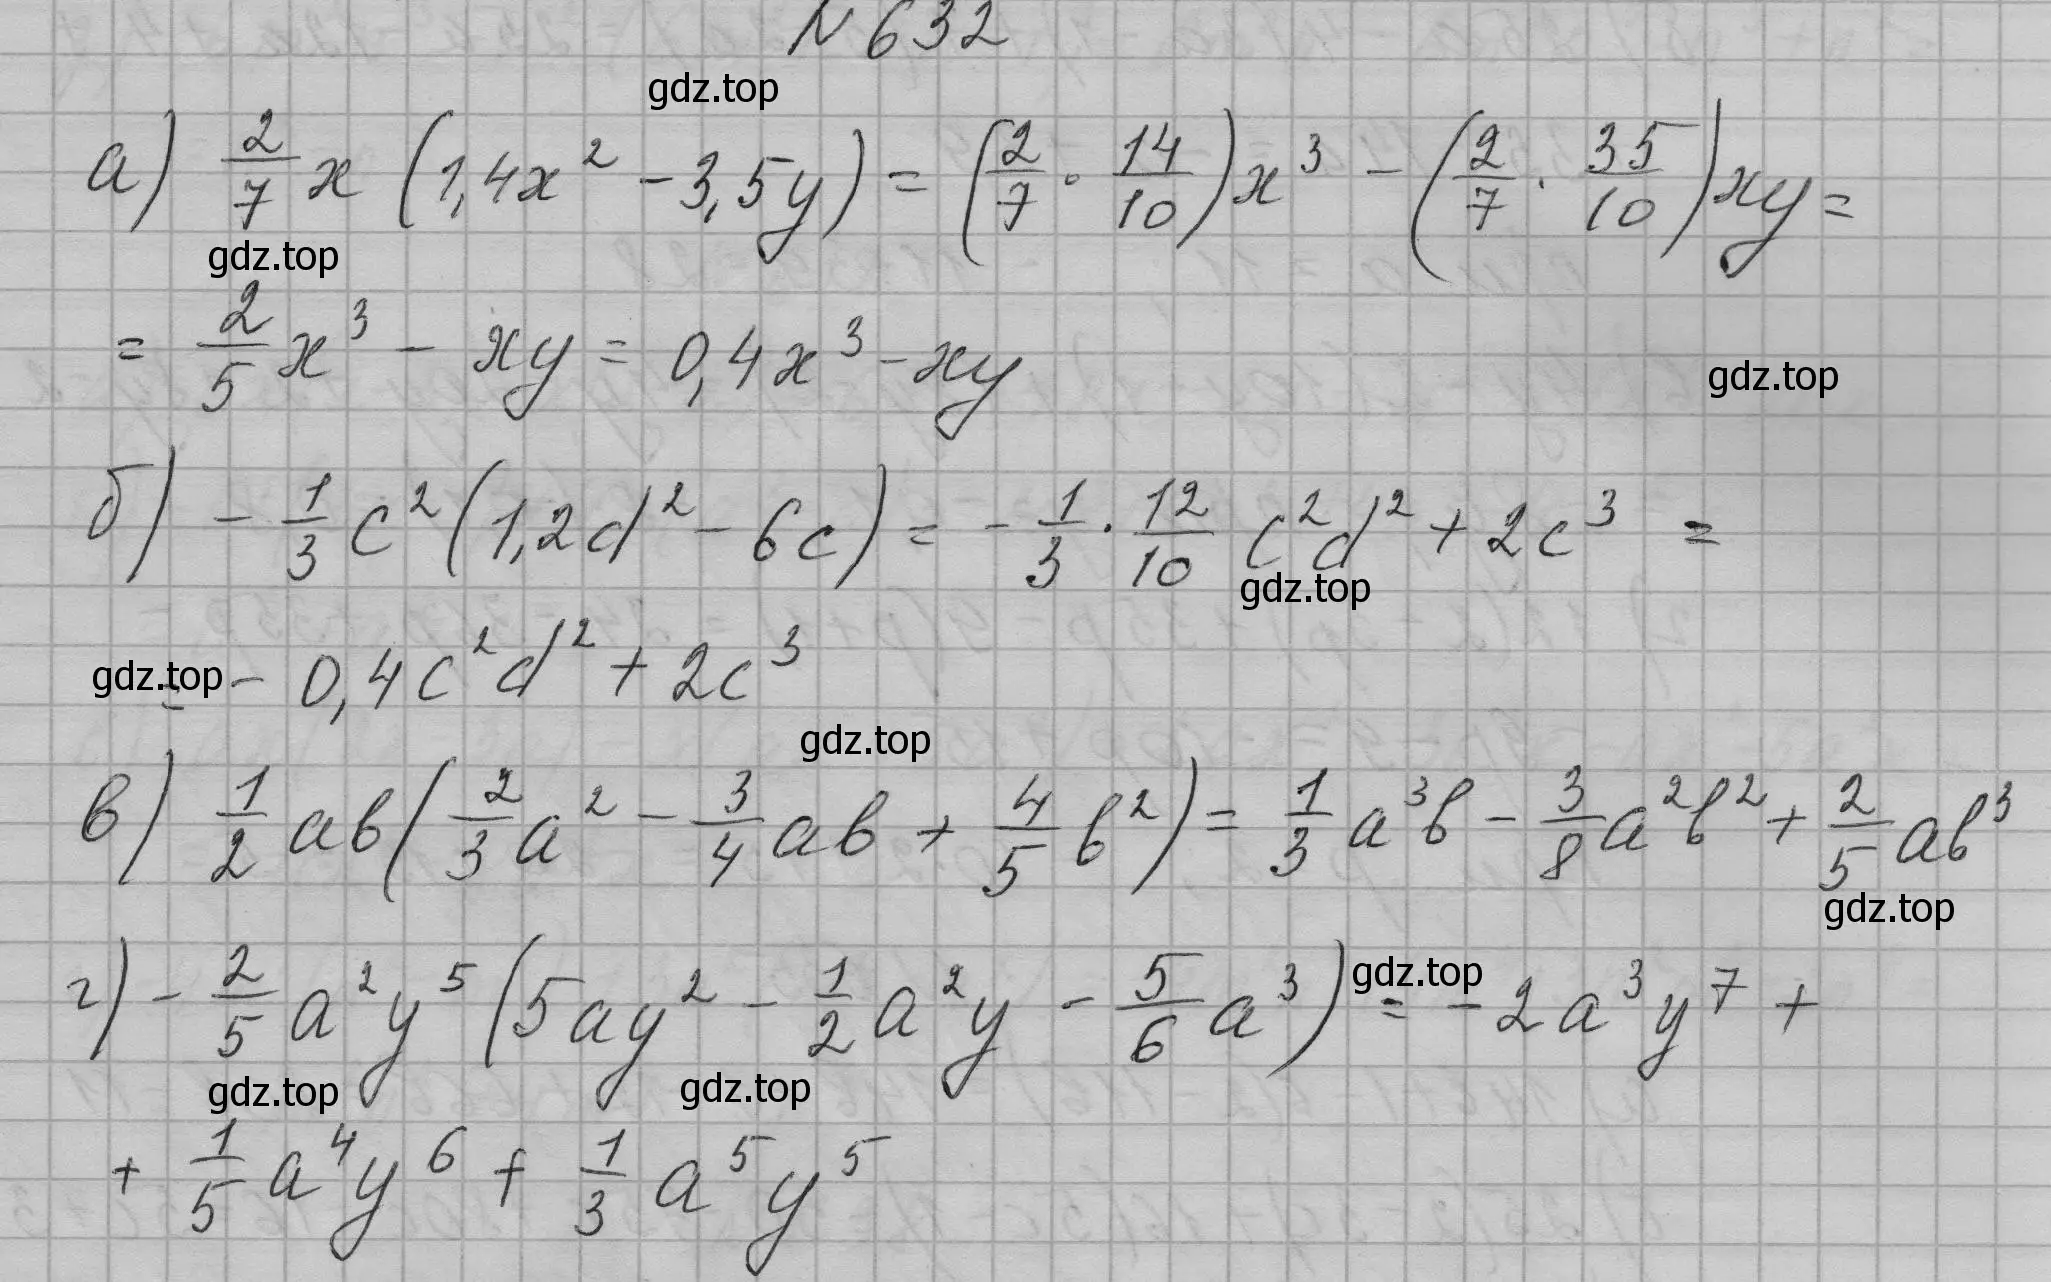 N 632
gdz.top
а) 2/7 x (1,4x² - 3,5y) = (2/7 · 14/10)x³ - (2/7 · 35/10)xy =
gdz.top
= 2/5 x³ - xy = 0,4x³ - xy
gdz.top
б) - 1/3 c² (1,2d² - 6c) = - 1/3 · 12/10 c²d² + 2c³ =
gdz.top
gdz.top
= - 0,4c²d² + 2c³
gdz.top
в) 1/2 ab (2/3 a² - 3/4 ab + 4/5 b²) = 1/3 a³b - 3/8 a²b² + 2/5 ab³
gdz.top
г) - 2/5 a²y⁵ (5ay² - 1/2 a²y - 5/6 a³) = - 2a³y⁷ +
gdz.top
gdz.top
gdz.top
+ 1/5 a⁴y⁶ + 1/3 a⁵y⁵